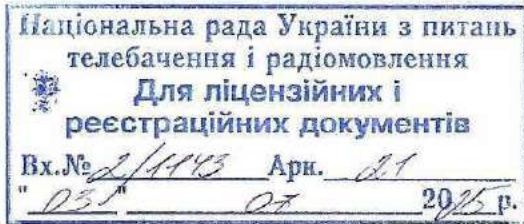 Національна рада України з питань
телебачення і радіомовлення
Для ліцензійних і
реєстраційних документів
Вх.№ 2/1143 Арк. 21
" 03 " 07 2025 р.